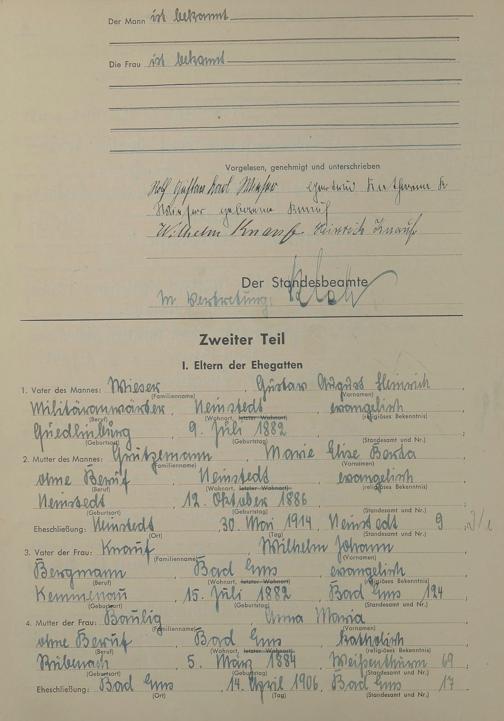 Der Mann ist bekannt
Die Frau ist bekannt
Vorgelesen, genehmigt und unterschrieben
Rolf Gustav Karl Wieser Gertrud Katharina K
Wieser geborene Knauf
Wilhelm Knauf Heinrich Knauf
Der Standesbeamte
In Vertretung:
Zweiter Teil
I. Eltern der Ehegatten
1. Vater des Mannes: Wieser, Gustav August Heinrich
(Familienname) (Vornamen)
Militäranwärter, Neinstedt, evangelisch
(Beruf) (Wohnort, letzter Wohnort) (religiöses Bekenntnis)
Quedlinburg, 9. Juli 1882
(Geburtsort) (Geburtstag) (Standesamt und Nr.)
2. Mutter des Mannes: Grützemann, Marie Elise Berta
(Familienname) (Vornamen)
ohne Beruf, Neinstedt, evangelisch
(Beruf) (Wohnort, letzter Wohnort) (religiöses Bekenntnis)
Neinstedt, 12. Oktober 1886
(Geburtsort) (Geburtstag) (Standesamt und Nr.)
Eheschließung: Neinstedt, 30. Mai 1914, Neinstedt 9
(Ort) (Tag) (Standesamt und Nr.)
3. Vater der Frau: Knauf, Wilhelm Johann
(Familienname) (Vornamen)
Bergmann, Bad Ems, evangelisch
(Beruf) (Wohnort, letzter Wohnort) (religiöses Bekenntnis)
Kemmenau, 15. Juli 1882, Bad Ems 124
(Geburtsort) (Geburtstag) (Standesamt und Nr.)
4. Mutter der Frau: Paulig, Anna Maria
(Familienname) (Vornamen)
ohne Beruf, Bad Ems, katholisch
(Beruf) (Wohnort, letzter Wohnort) (religiöses Bekenntnis)
Rübenach, 5. März 1884, Weißenthurm 69
(Geburtsort) (Geburtstag) (Standesamt und Nr.)
Eheschließung: Bad Ems, 14. April 1906, Bad Ems 17
(Ort) (Tag) (Standesamt und Nr.)